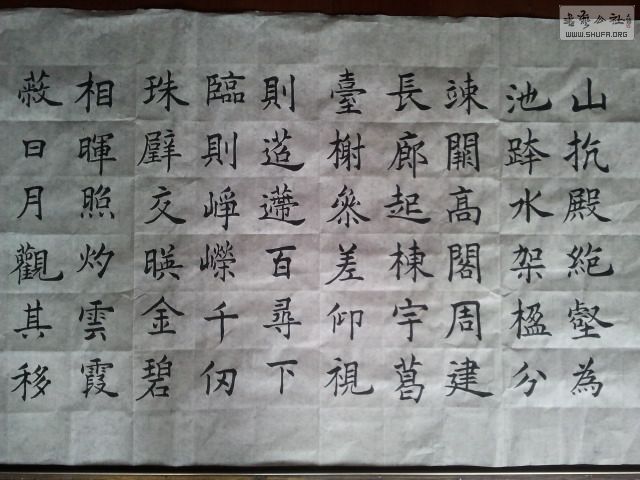 山抗殿絶壑為
池跨水架楹分
竦闕高閣周建
長廊起棟宇葛
臺榭參差仰視
則迢遰百尋下
臨則崢嶸千仞
珠璧交暎金碧
相暉照灼雲霞
蔽日月觀其移
书艺公社
WWW.SHUFA.ORG